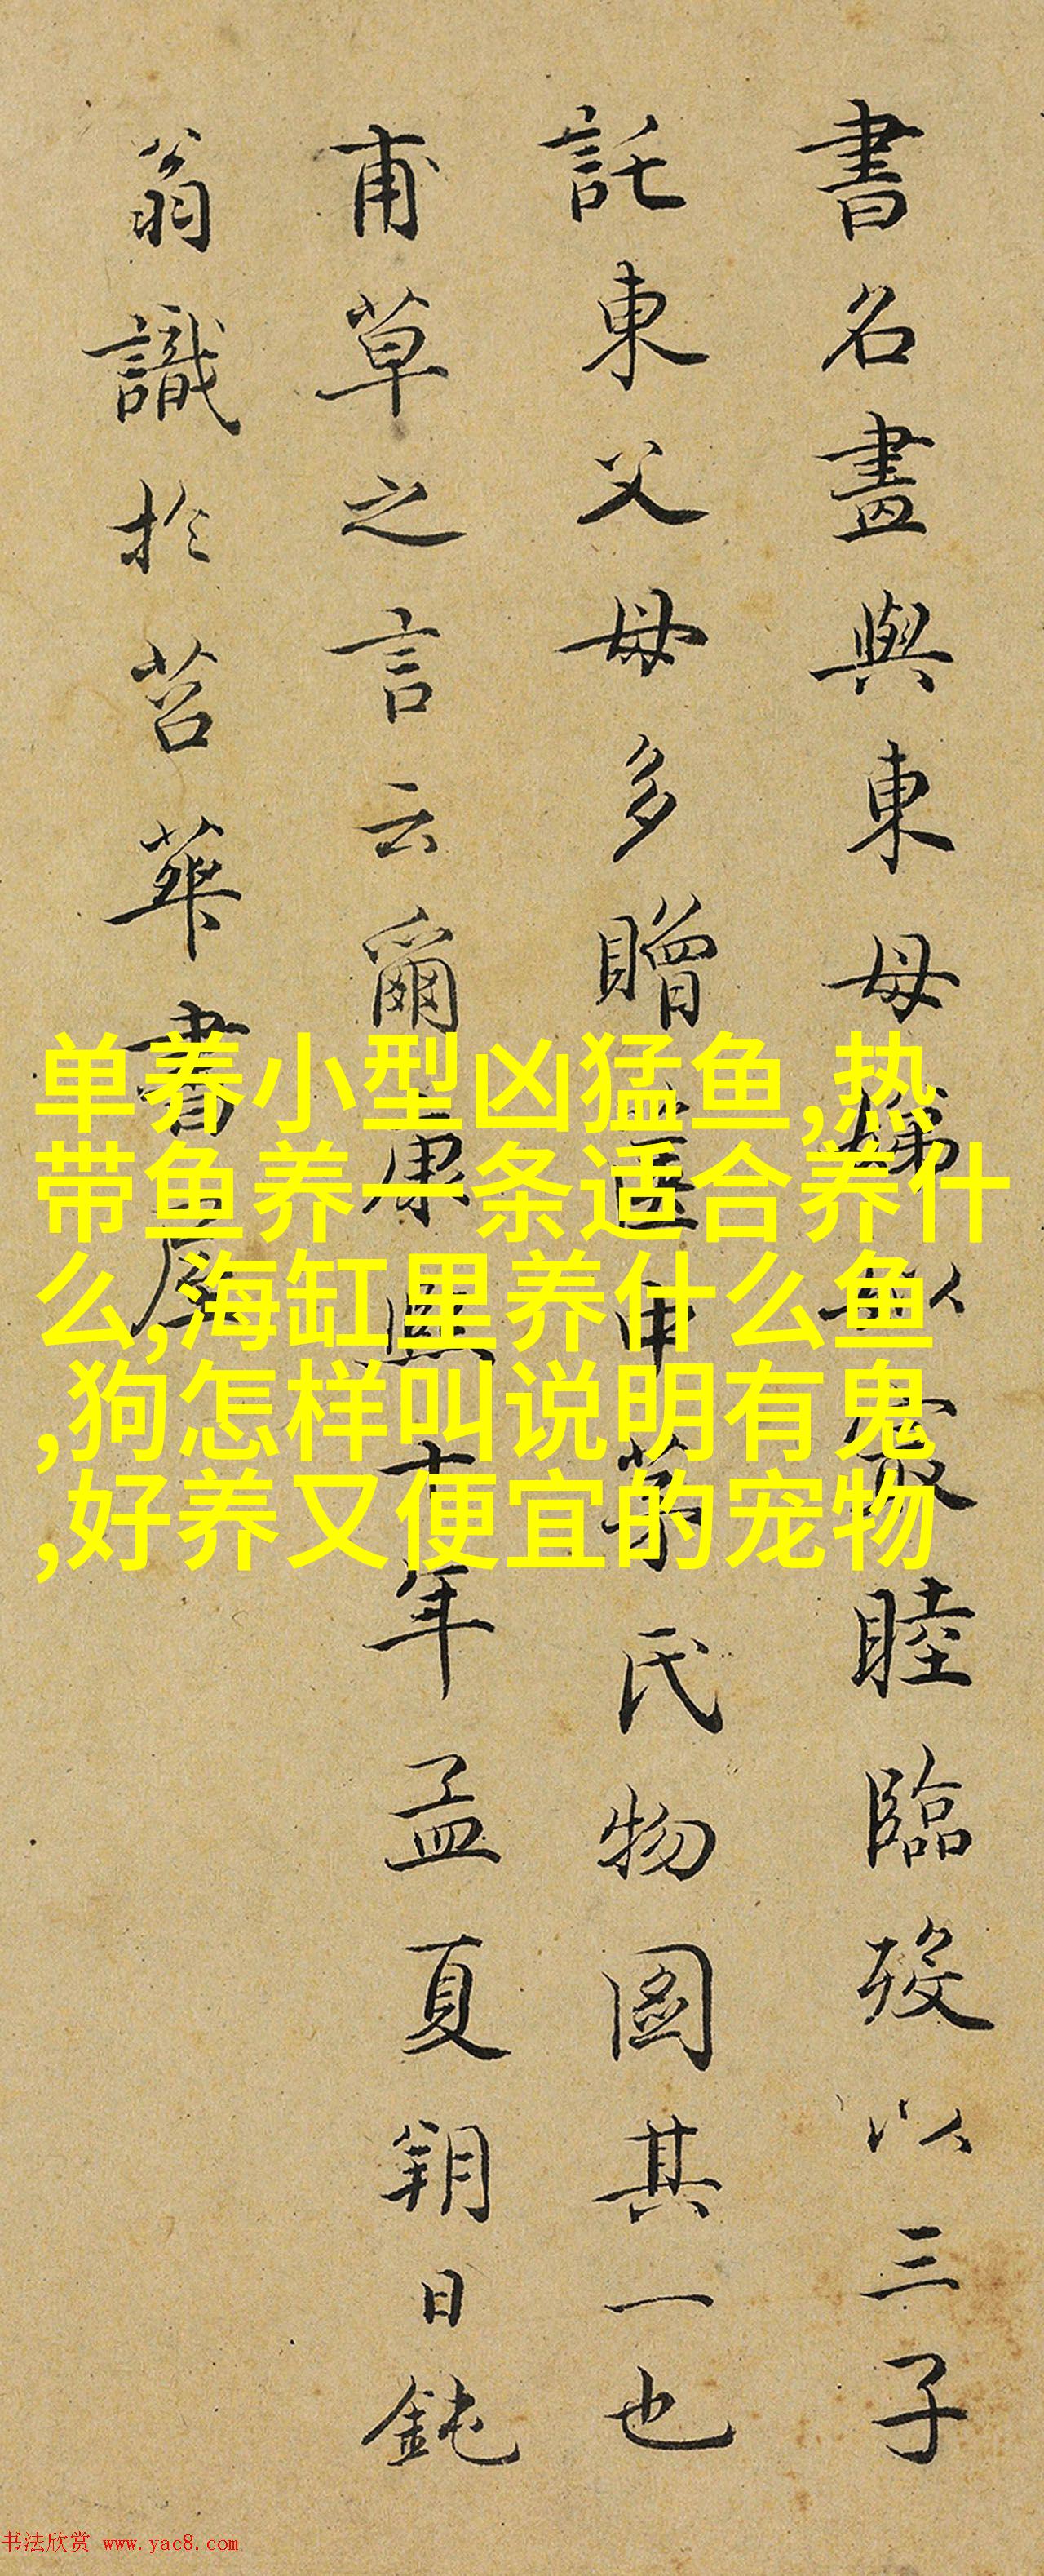 書名畫與東母娣
睦臨歿以三子
託東父母多贈
氏物圖其一也
甫草之言云爾康熙十年孟夏朔日鈍
翁識於苕華書屋
单养小型凶猛鱼,热
带鱼养一条适合养什
么,海缸里养什么鱼
,狗怎样叫说明有鬼
,好养又便宜的宠物
书法欣赏 www.yac8.com